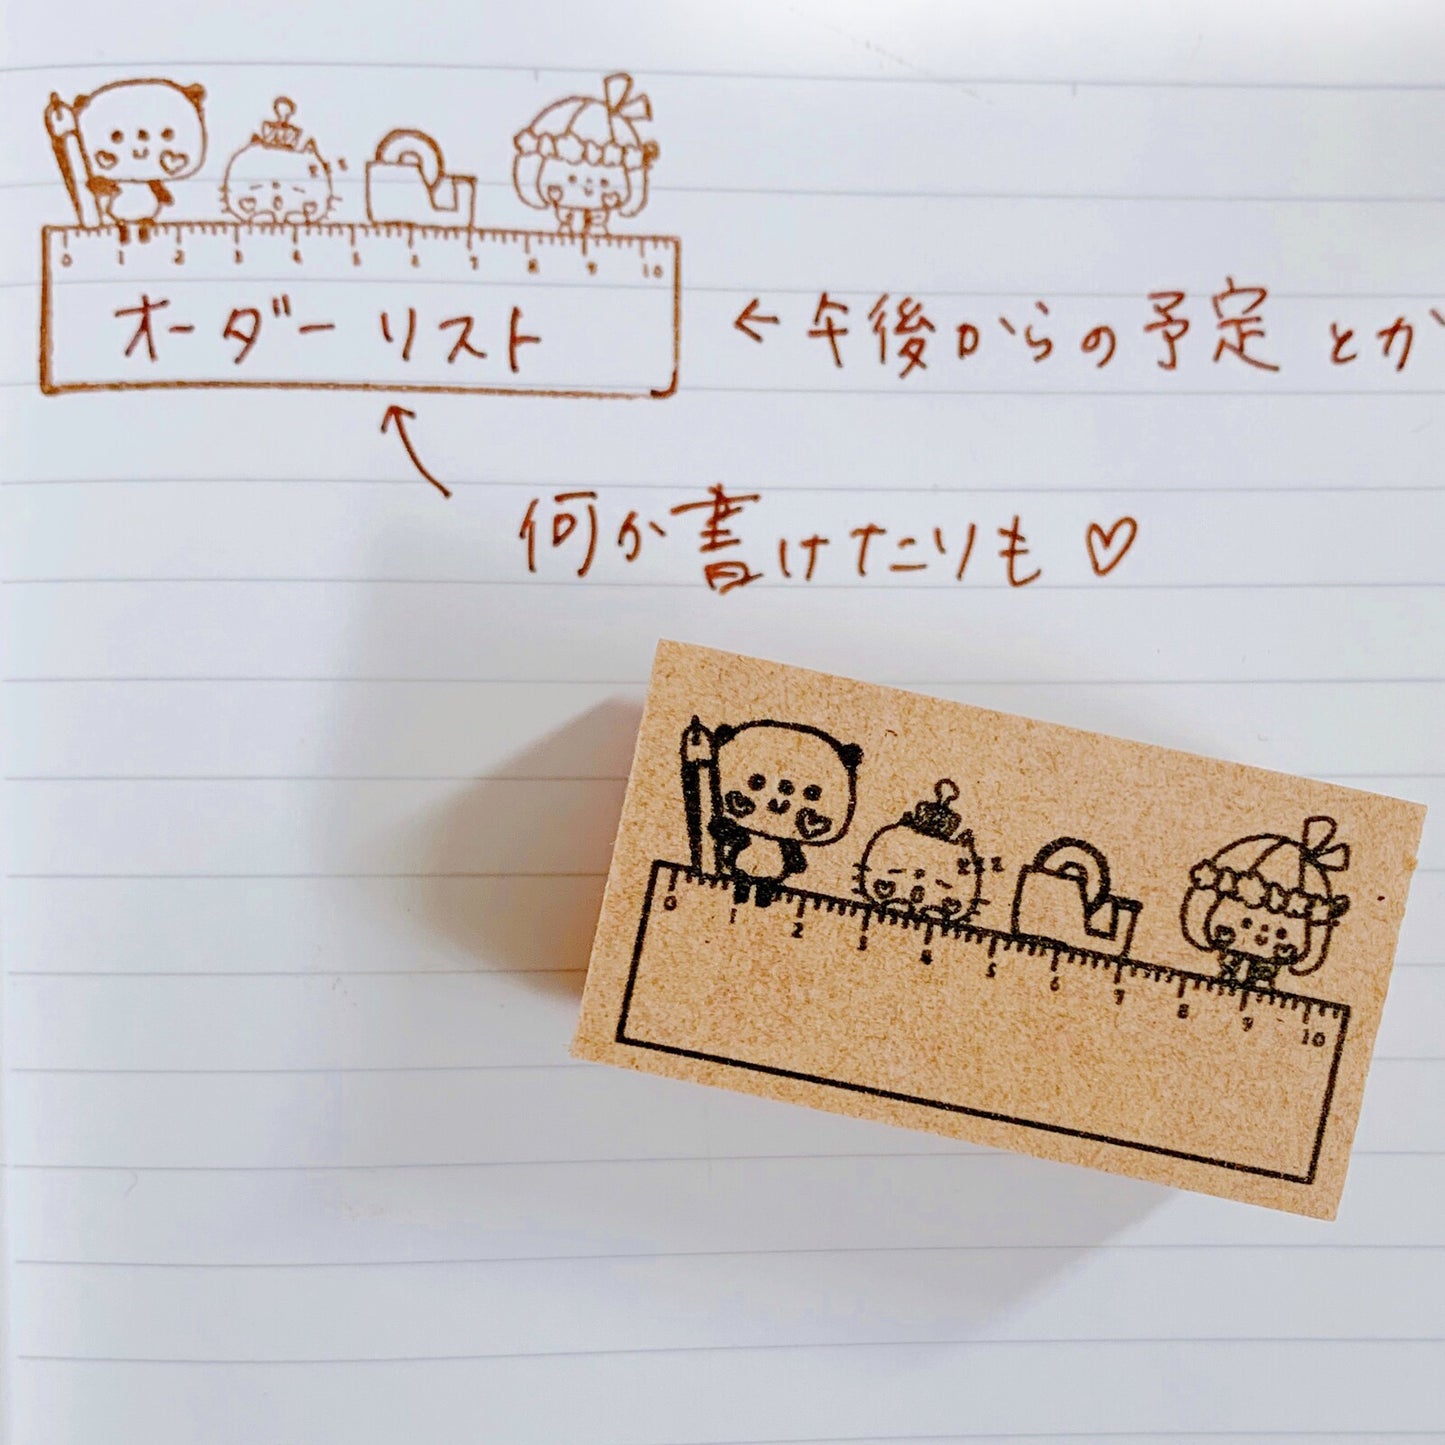 0 1 2 3 4 5 6 7 8 9 10
オーダーリスト
←午後からの予定とか
何か書けたりも♡
zzz
0 1 2 3 4 5 6 7 8 9 10